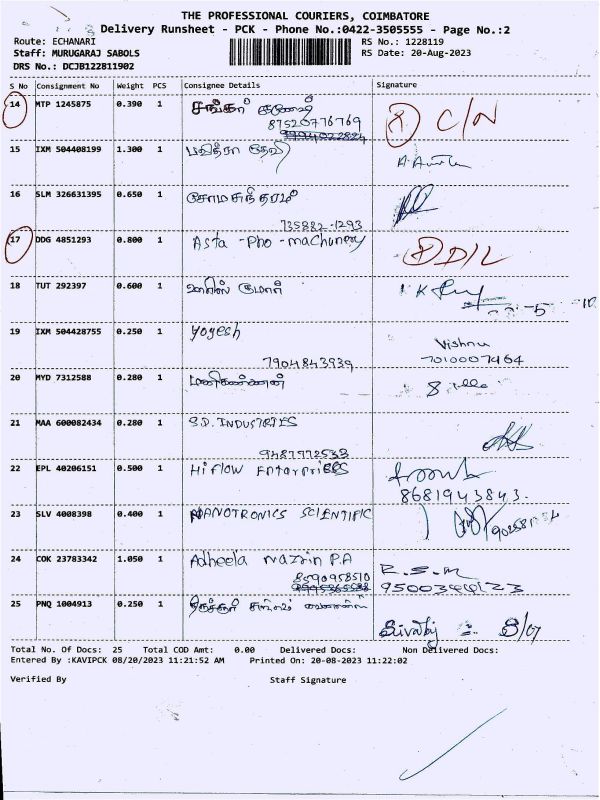 THE PROFESSIONAL COURIERS, COIMBATORE
Delivery Runsheet - PCK - Phone No.:0422-3505555 - Page No.:2
Route: ECHANARI
RS No.: 1228119
Staff: MURUGARAJ SABOLS
RS Date: 20-Aug-2023
DRS No.: DCJB122811902
S No Consignment No Weight PCS Consignee Details Signature
14 MTP 1245875 0.390 1 சங்கர் C/N
15 IXM 504408199 1.300 1 பவித்ரா தேவி
16 SLM 326631395 0.650 1 சோமசுந்தரம்
735882-1293
17 DDG 4851293 0.800 1 Asta -Pho -machunery D/L
18 TUT 292397 0.600 1 குமார்
19 IXM 504428755 0.250 1 Yogesh Vishnu
7904843939 7010007464
20 MYD 7312588 0.280 1 மணிகண்ணன்
21 MAA 600082434 0.280 1 S.D. INDUSTRIES
9487972533
22 EPL 40206151 0.500 1 Hiflow Enterprises
8681943843.
23 SLV 4008398 0.400 1 NANOTRONICS SCIENTIFIC
24 COK 23783342 1.050 1 Adheela Nazrin P.A R.S.M
8590958510
25 PNQ 1004913 0.250 1
Total No. Of Docs: 25 Total COD Amt: 0.00 Delivered Docs: Non Delivered Docs:
Entered By :KAVIPCK 08/20/2023 11:21:52 AM Printed On: 20-08-2023 11:22:02
Verified By Staff Signature